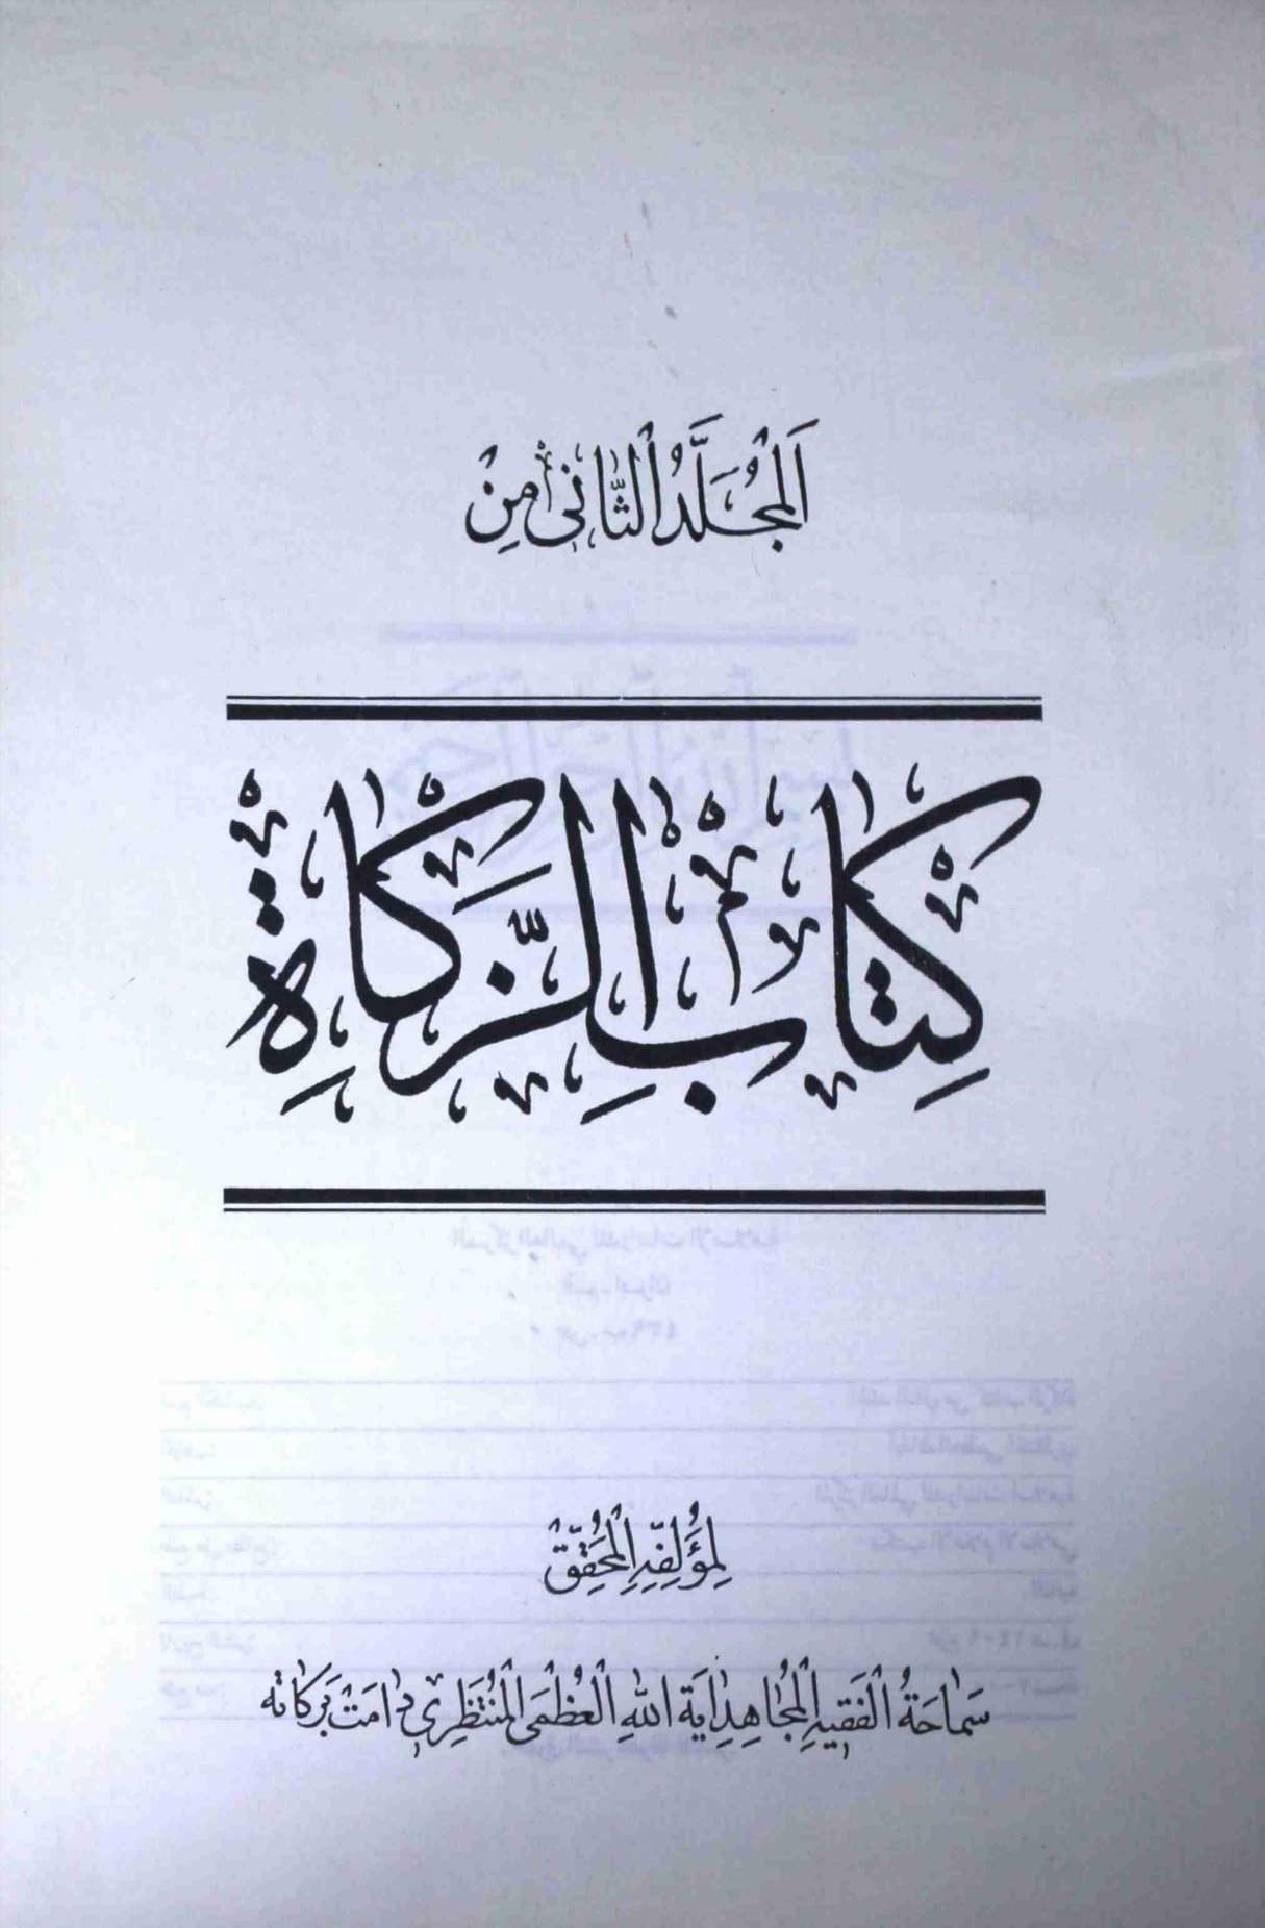 اَلْمُجَلَّدُ الثَّانِی مِنْ
كِتَابِ الزَّكَاةِ
لِمُؤَلِّفِهِ الْمُحَقِّقْ
سَمَاحَةُ الْفَقِيهِ الْمُجَاهِدِ ايَةِ اللهِ الْعُظْمَى الْمُنْتَظِرِي دَامَتْ بَرَكَاتُه